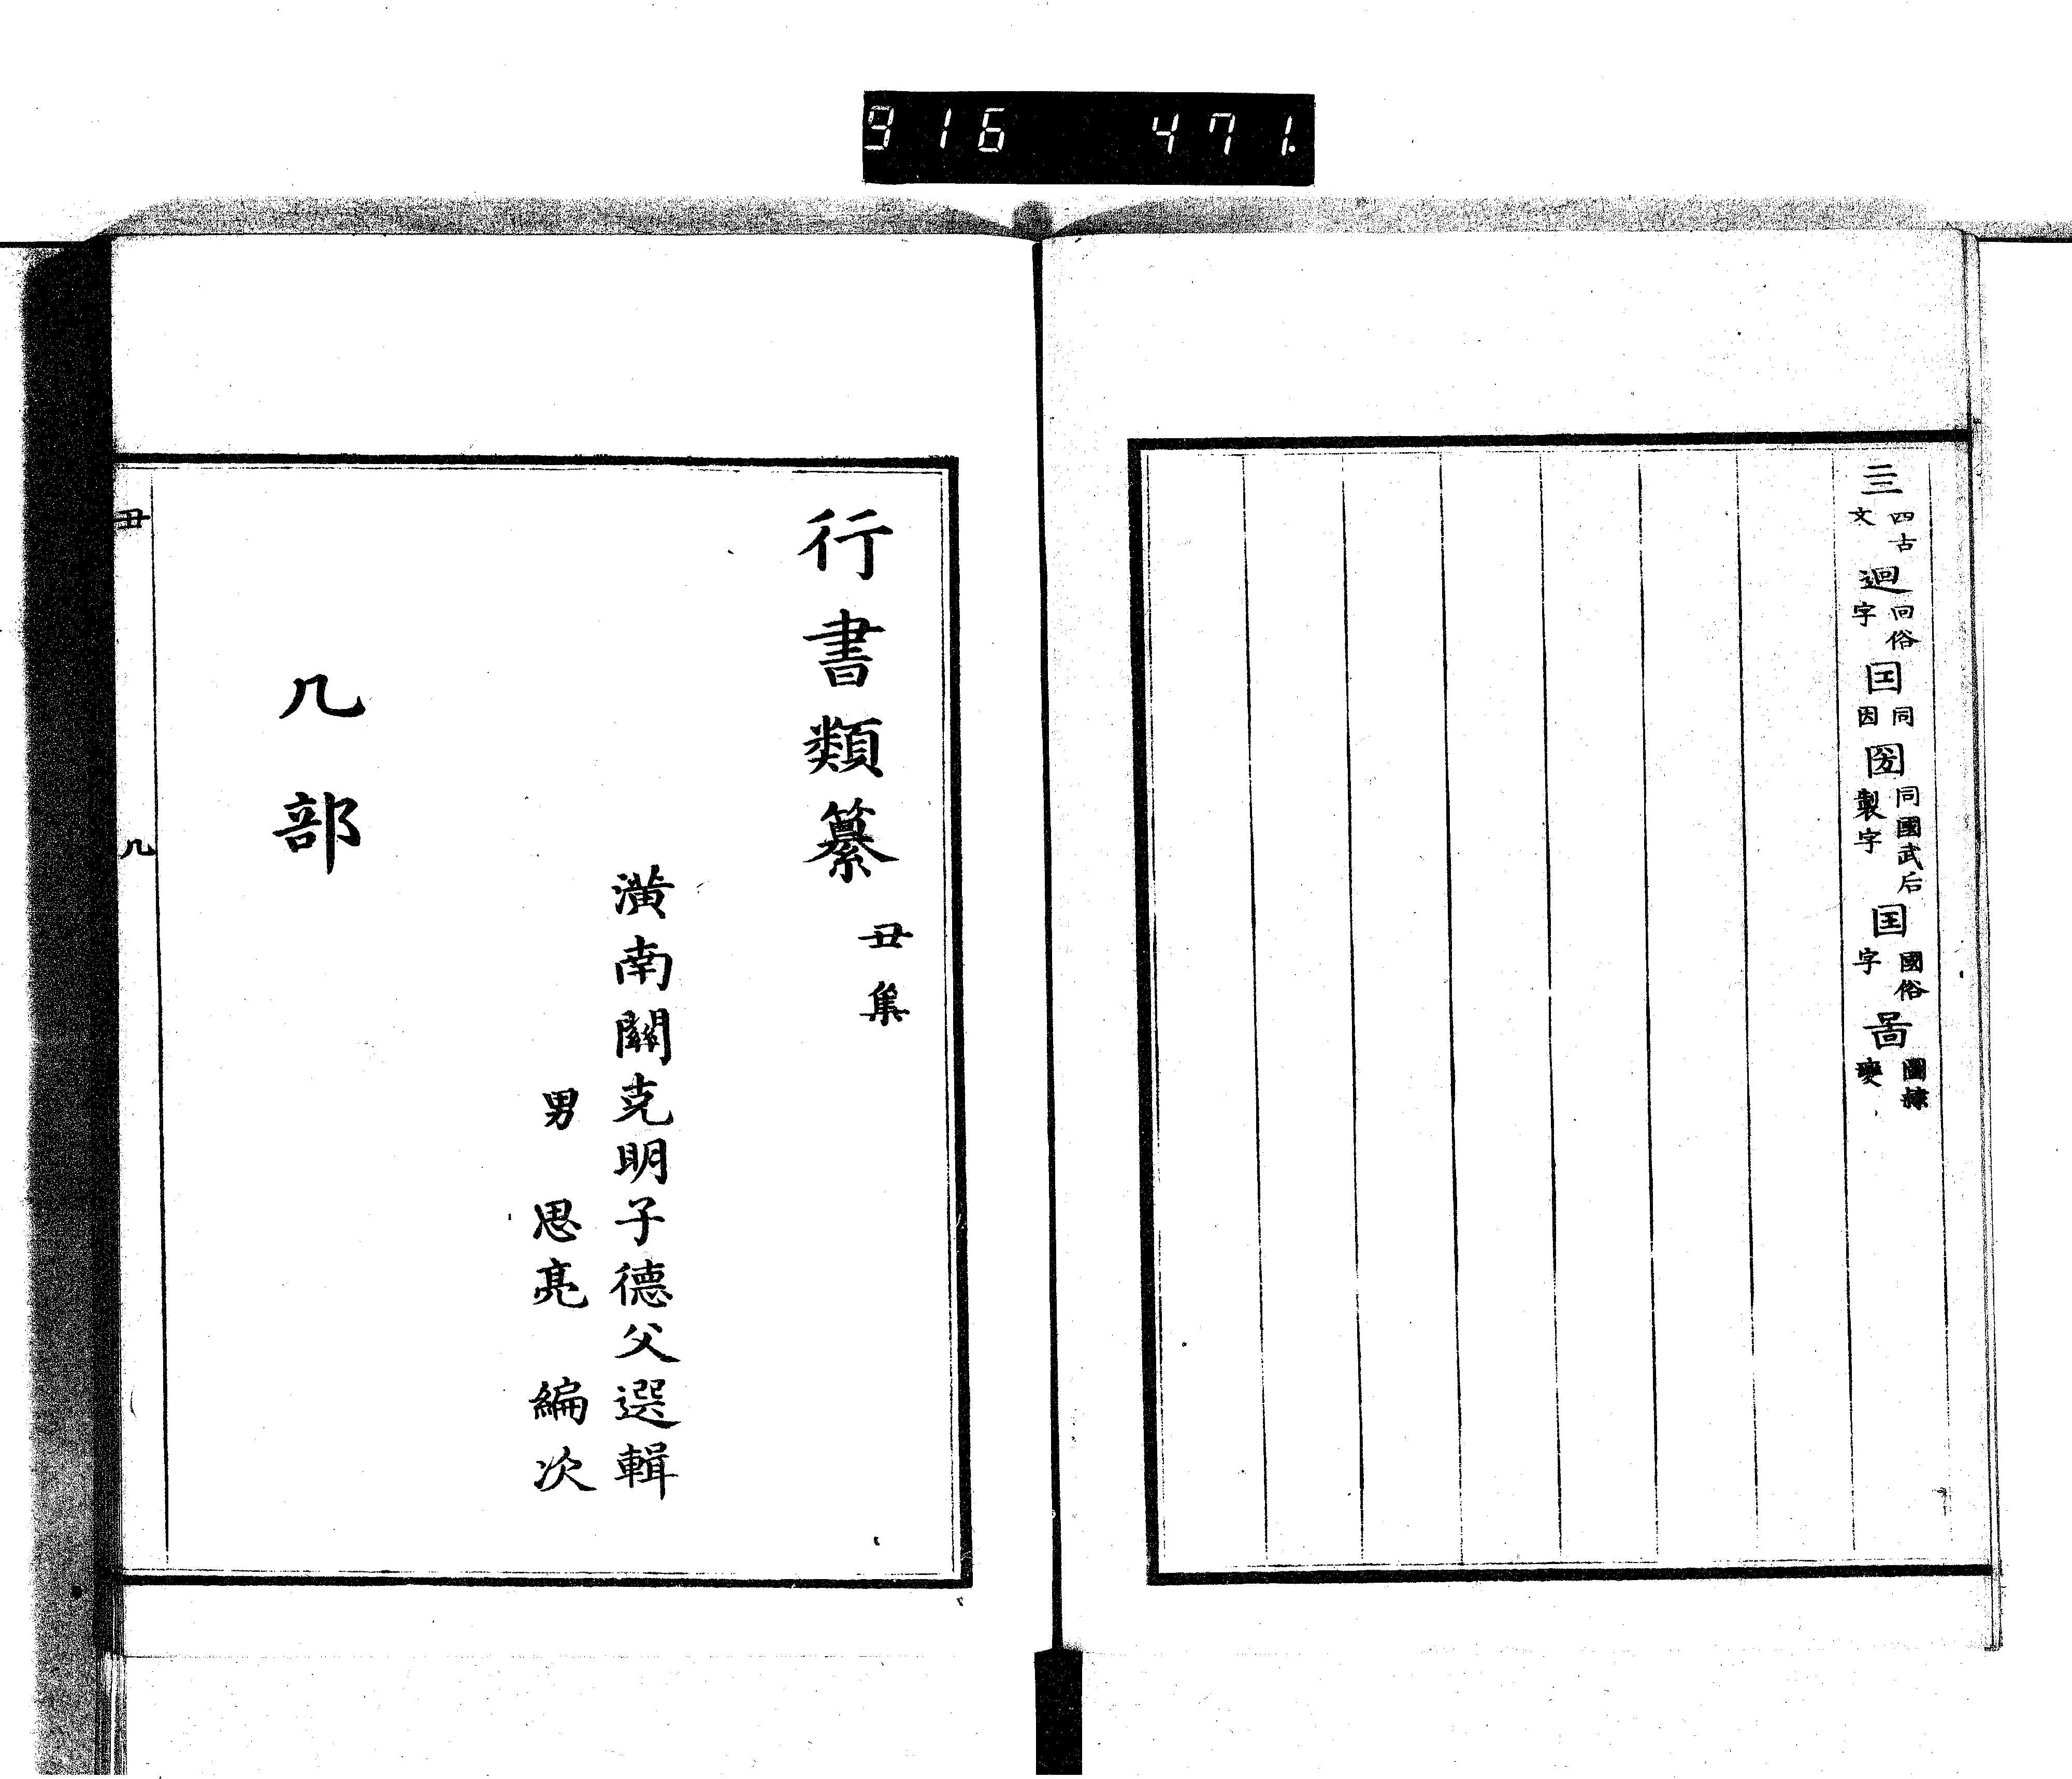 916 471.
亖四古文迴回俗字囯同因圀同國武后製字囯國俗字啚圖隸變
行書類纂 丑集
潢南關克明子德父選輯
男 思亮 編次
几部
丑 几